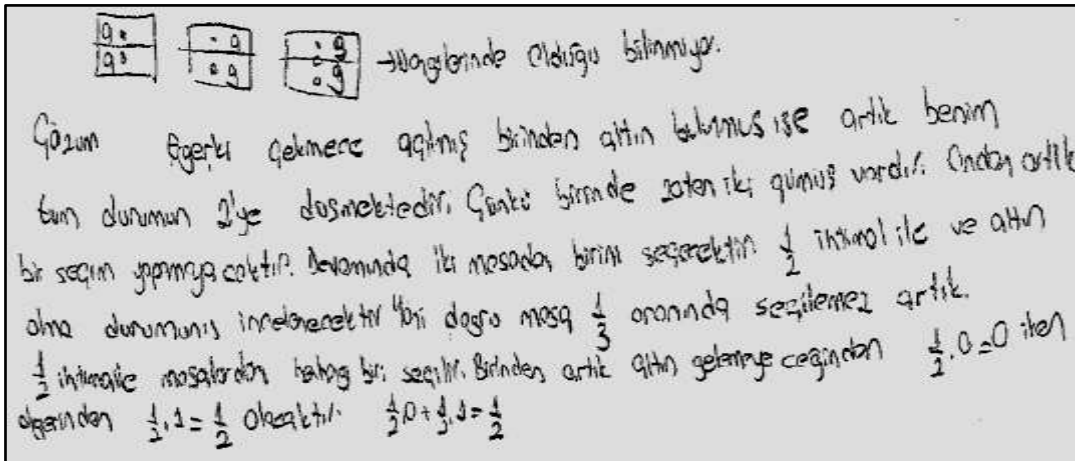 g. .g .g → Hangilerinde olduğu bilinmiyor.
g. .g .g
Çözüm Eğerki çekmece açılmış birinden altın bulunmuş ise artık benim
tüm durumun 2'ye düşmektedir. Çünkü birinde zaten iki gümüş vardır. Ondan artık
bir seçim yapmayacaktır. Devamında iki masadan birini seçecektir. 1/2 ihtimal ile ve altın
olma durumunu incelenecektir yani doğru masa 1/3 oranında seçilemez artık.
1/2 ihtimalle masalardan biri seçilir. Birinden artık altın gelemeyeceğinden 1/2 . 0 = 0 iken
diğerinden 1/2 . 1 = 1/2 olacaktır. 1/2 . 0 + 1/2 . 1 = 1/2